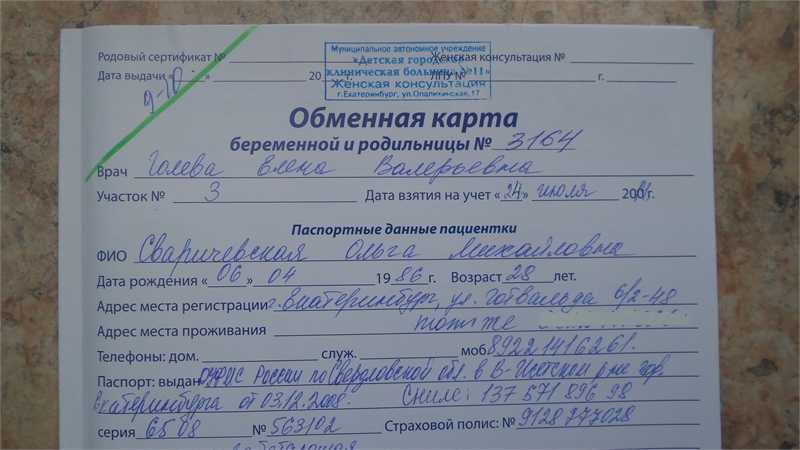 Муниципальное автономное учреждение
Родовый сертификат № «Детская городская Женская консультация №
Дата выдачи « » 20 г. клиническая больница №11» ЛПУ № г.
Женская консультация
г.Екатеринбург, ул.Опалихинская, 17
Обменная карта
беременной и родильницы № 3164
Врач Голева Елена Валерьевна
Участок № 3 Дата взятия на учет «24» июля 20 г.
Паспортные данные пациентки
ФИО Сваричевская Ольга Михайловна
Дата рождения «06» 04 1986г. Возраст 28 лет.
Адрес места регистрации г. Екатеринбург, ул. Готвальда 6/2-48
Адрес места проживания тот же
Телефоны: дом. служ. моб 89221416261.
Паспорт: выдан ОУФМС России по Свердловской обл. в В-Исетском р-не гор.
Екатеринбурга от 03.12.2008. Снилс: 137 571 896 98
серия 65 08 № 563102 Страховой полис: № 9128777028